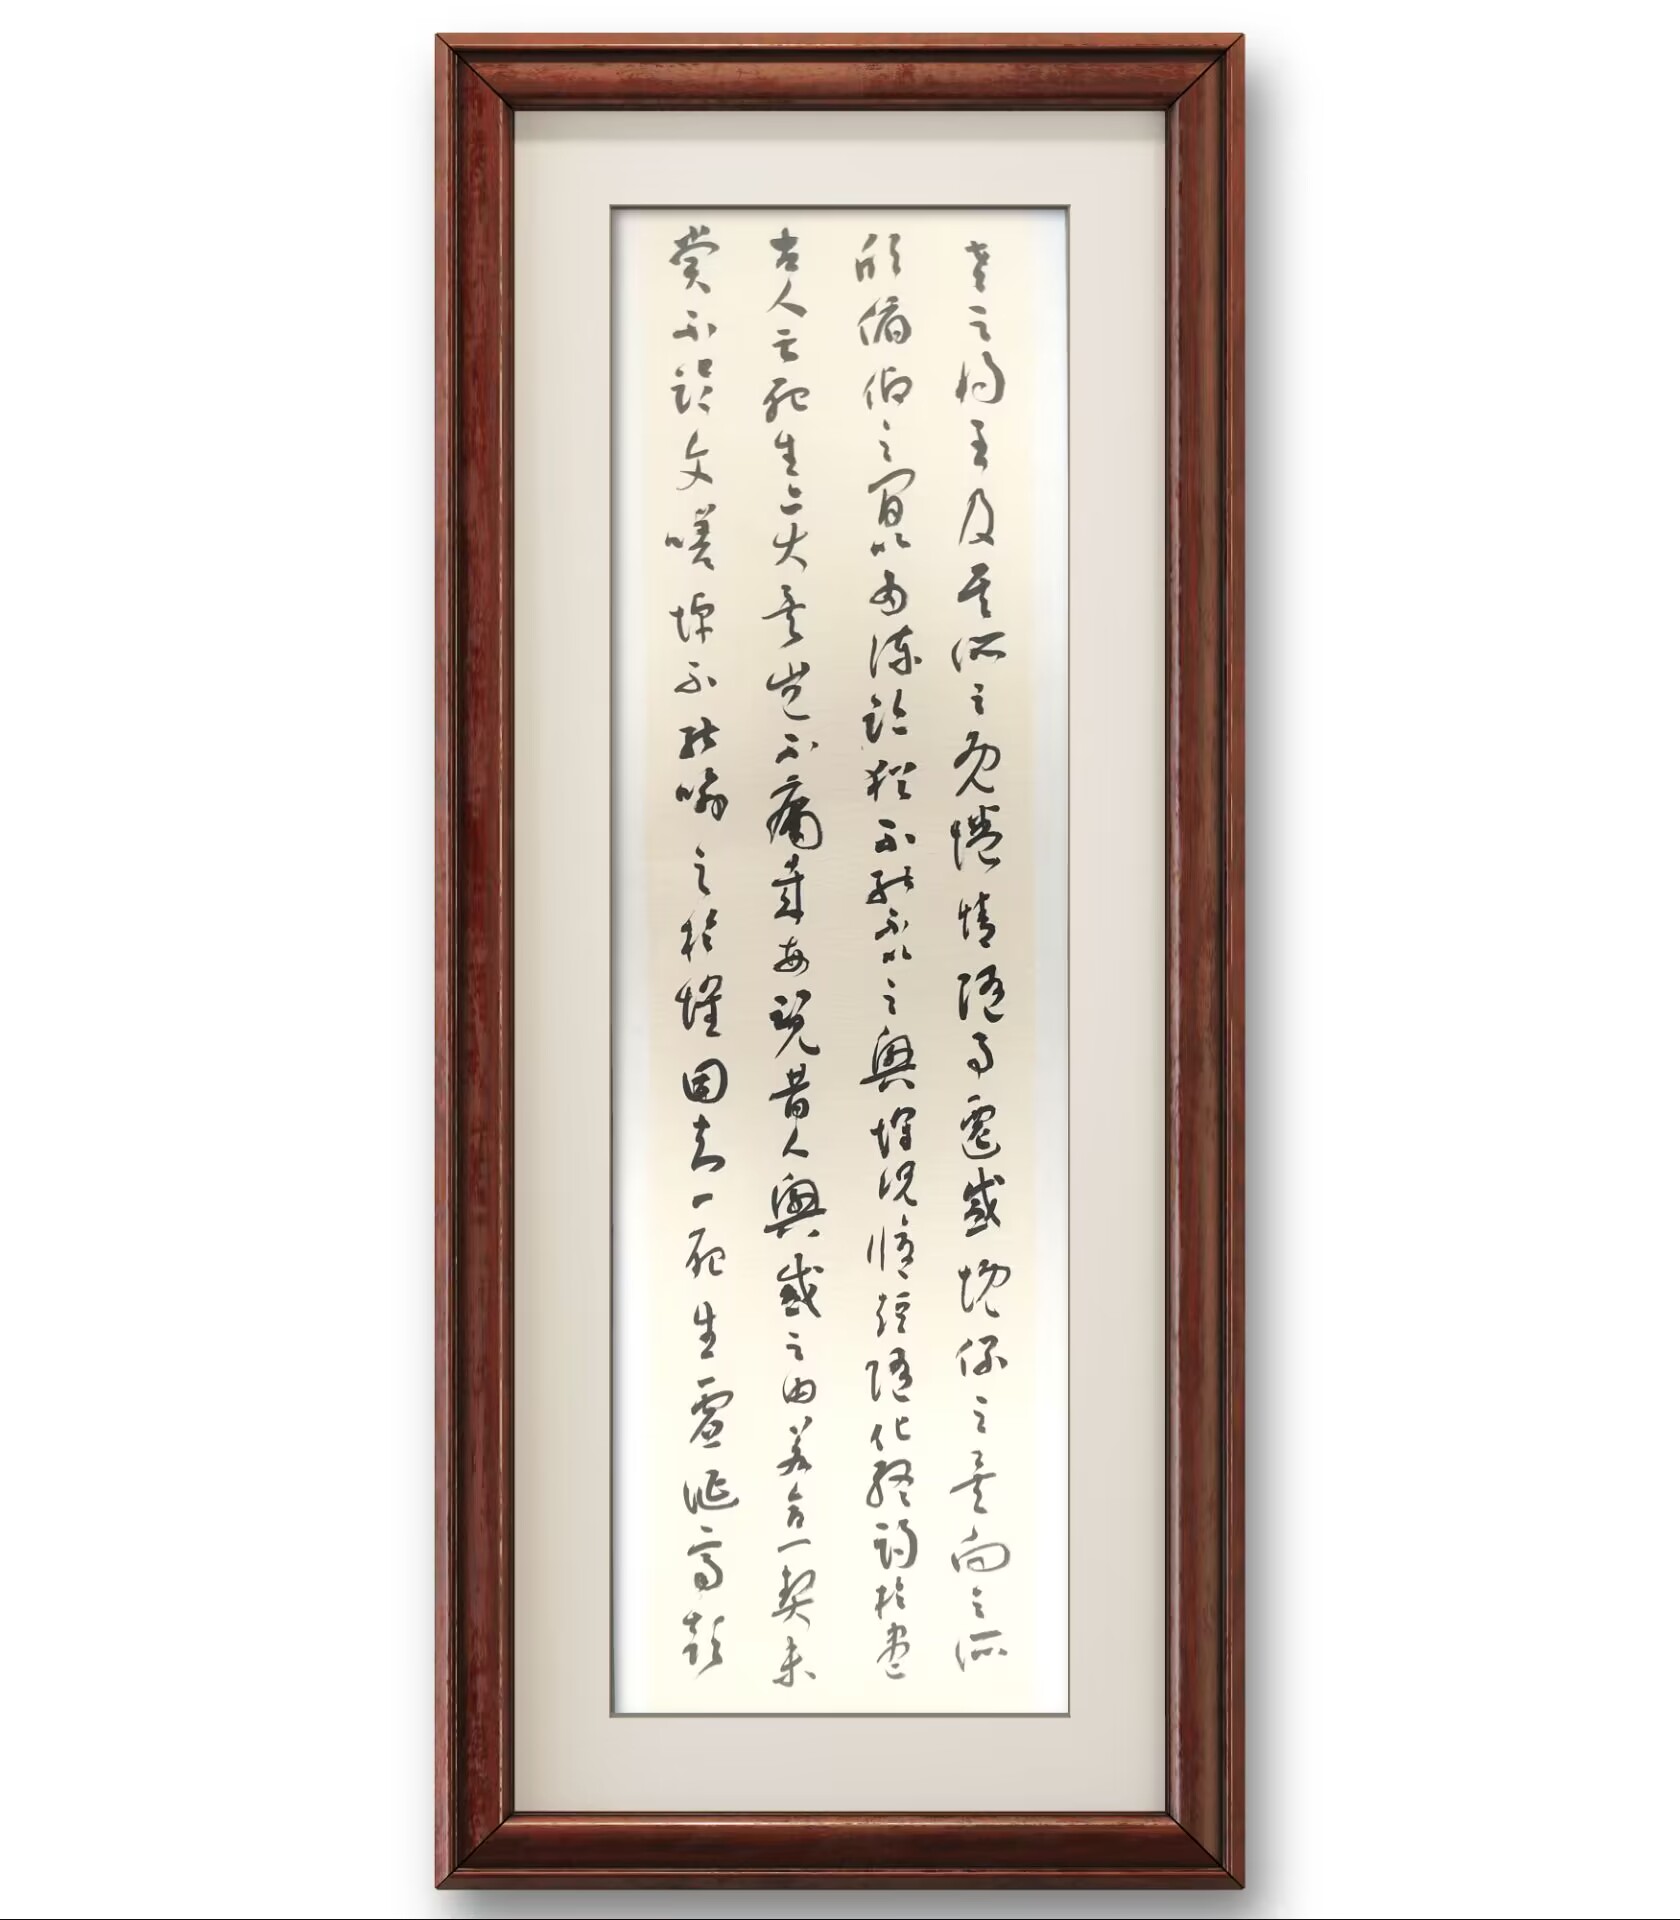 老之將至及其所之既惓情隨事遷感慨係之矣向之所
欣俯仰之間以為陳迹猶不能不以之興懷況脩短隨化終期於盡
古人云死生亦大矣豈不痛哉每覽昔人興感之由若合一契未
嘗不臨文嗟悼不能喻之於懷固知一死生虛誕齊彭